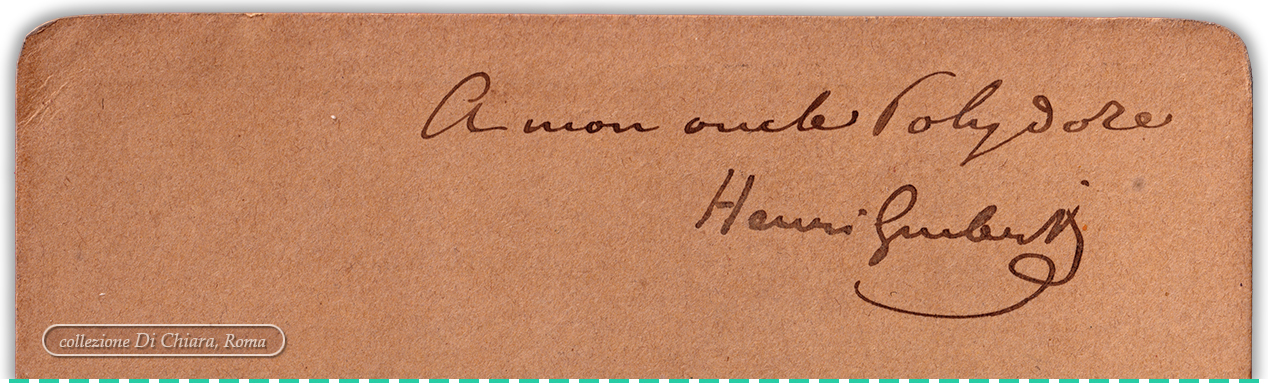 A mon oncle Polydore
Henri
collezione Di Chiara, Roma